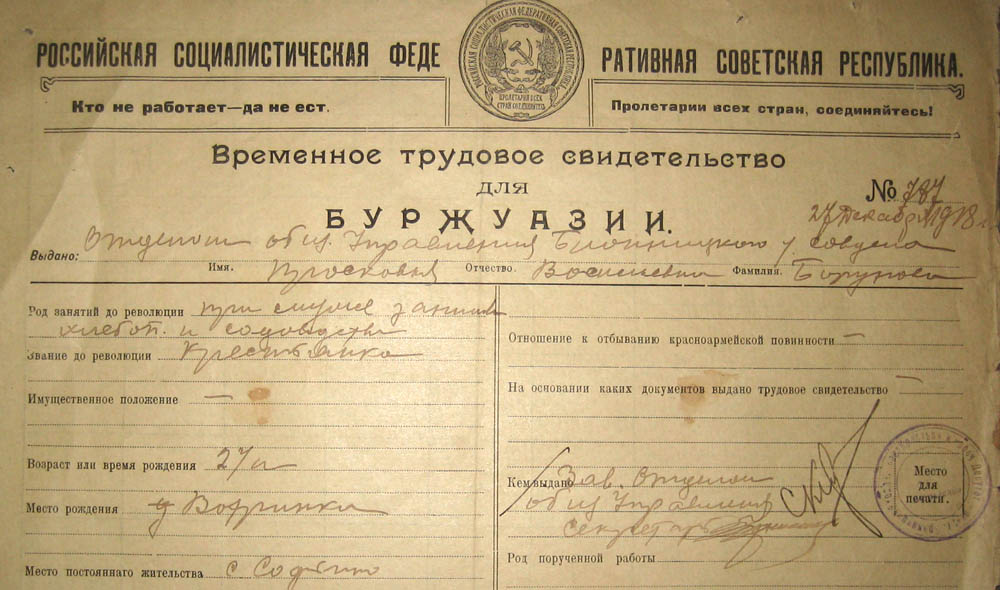 РОССИЙСКАЯ СОЦИАЛИСТИЧЕСКАЯ ФЕДЕ РАТИВНАЯ СОВЕТСКАЯ РЕСПУБЛИКА.
ПРОЛЕТАРИИ ВСЕХ СТРАН СОЕДИНЯЙТЕСЬ
Кто не работает—да не ест. Пролетарии всех стран, соединяйтесь!
Временное трудовое свидетельство
для
БУРЖУАЗИИ.
№ 787
27 декабря 1918 г
Выдано: Отделом общ. Управления у совдепа
Имя. Просковья Отчество. Васильевна Фамилия.
Род занятий до революции при муже заним
хлебоп. и садоводств
Звание до революции Крестьянка
Имущественное положение —
Возраст или время рождения 27 л
Место рождения
Место постоянного жительства с
Отношение к отбыванию красноармейской повинности —
На основании каких документов выдано трудовое свидетельство —
Кем выдано Зав. Отделом
общ Управления
Секретарь
Место
для
печати.
Род порученной работы